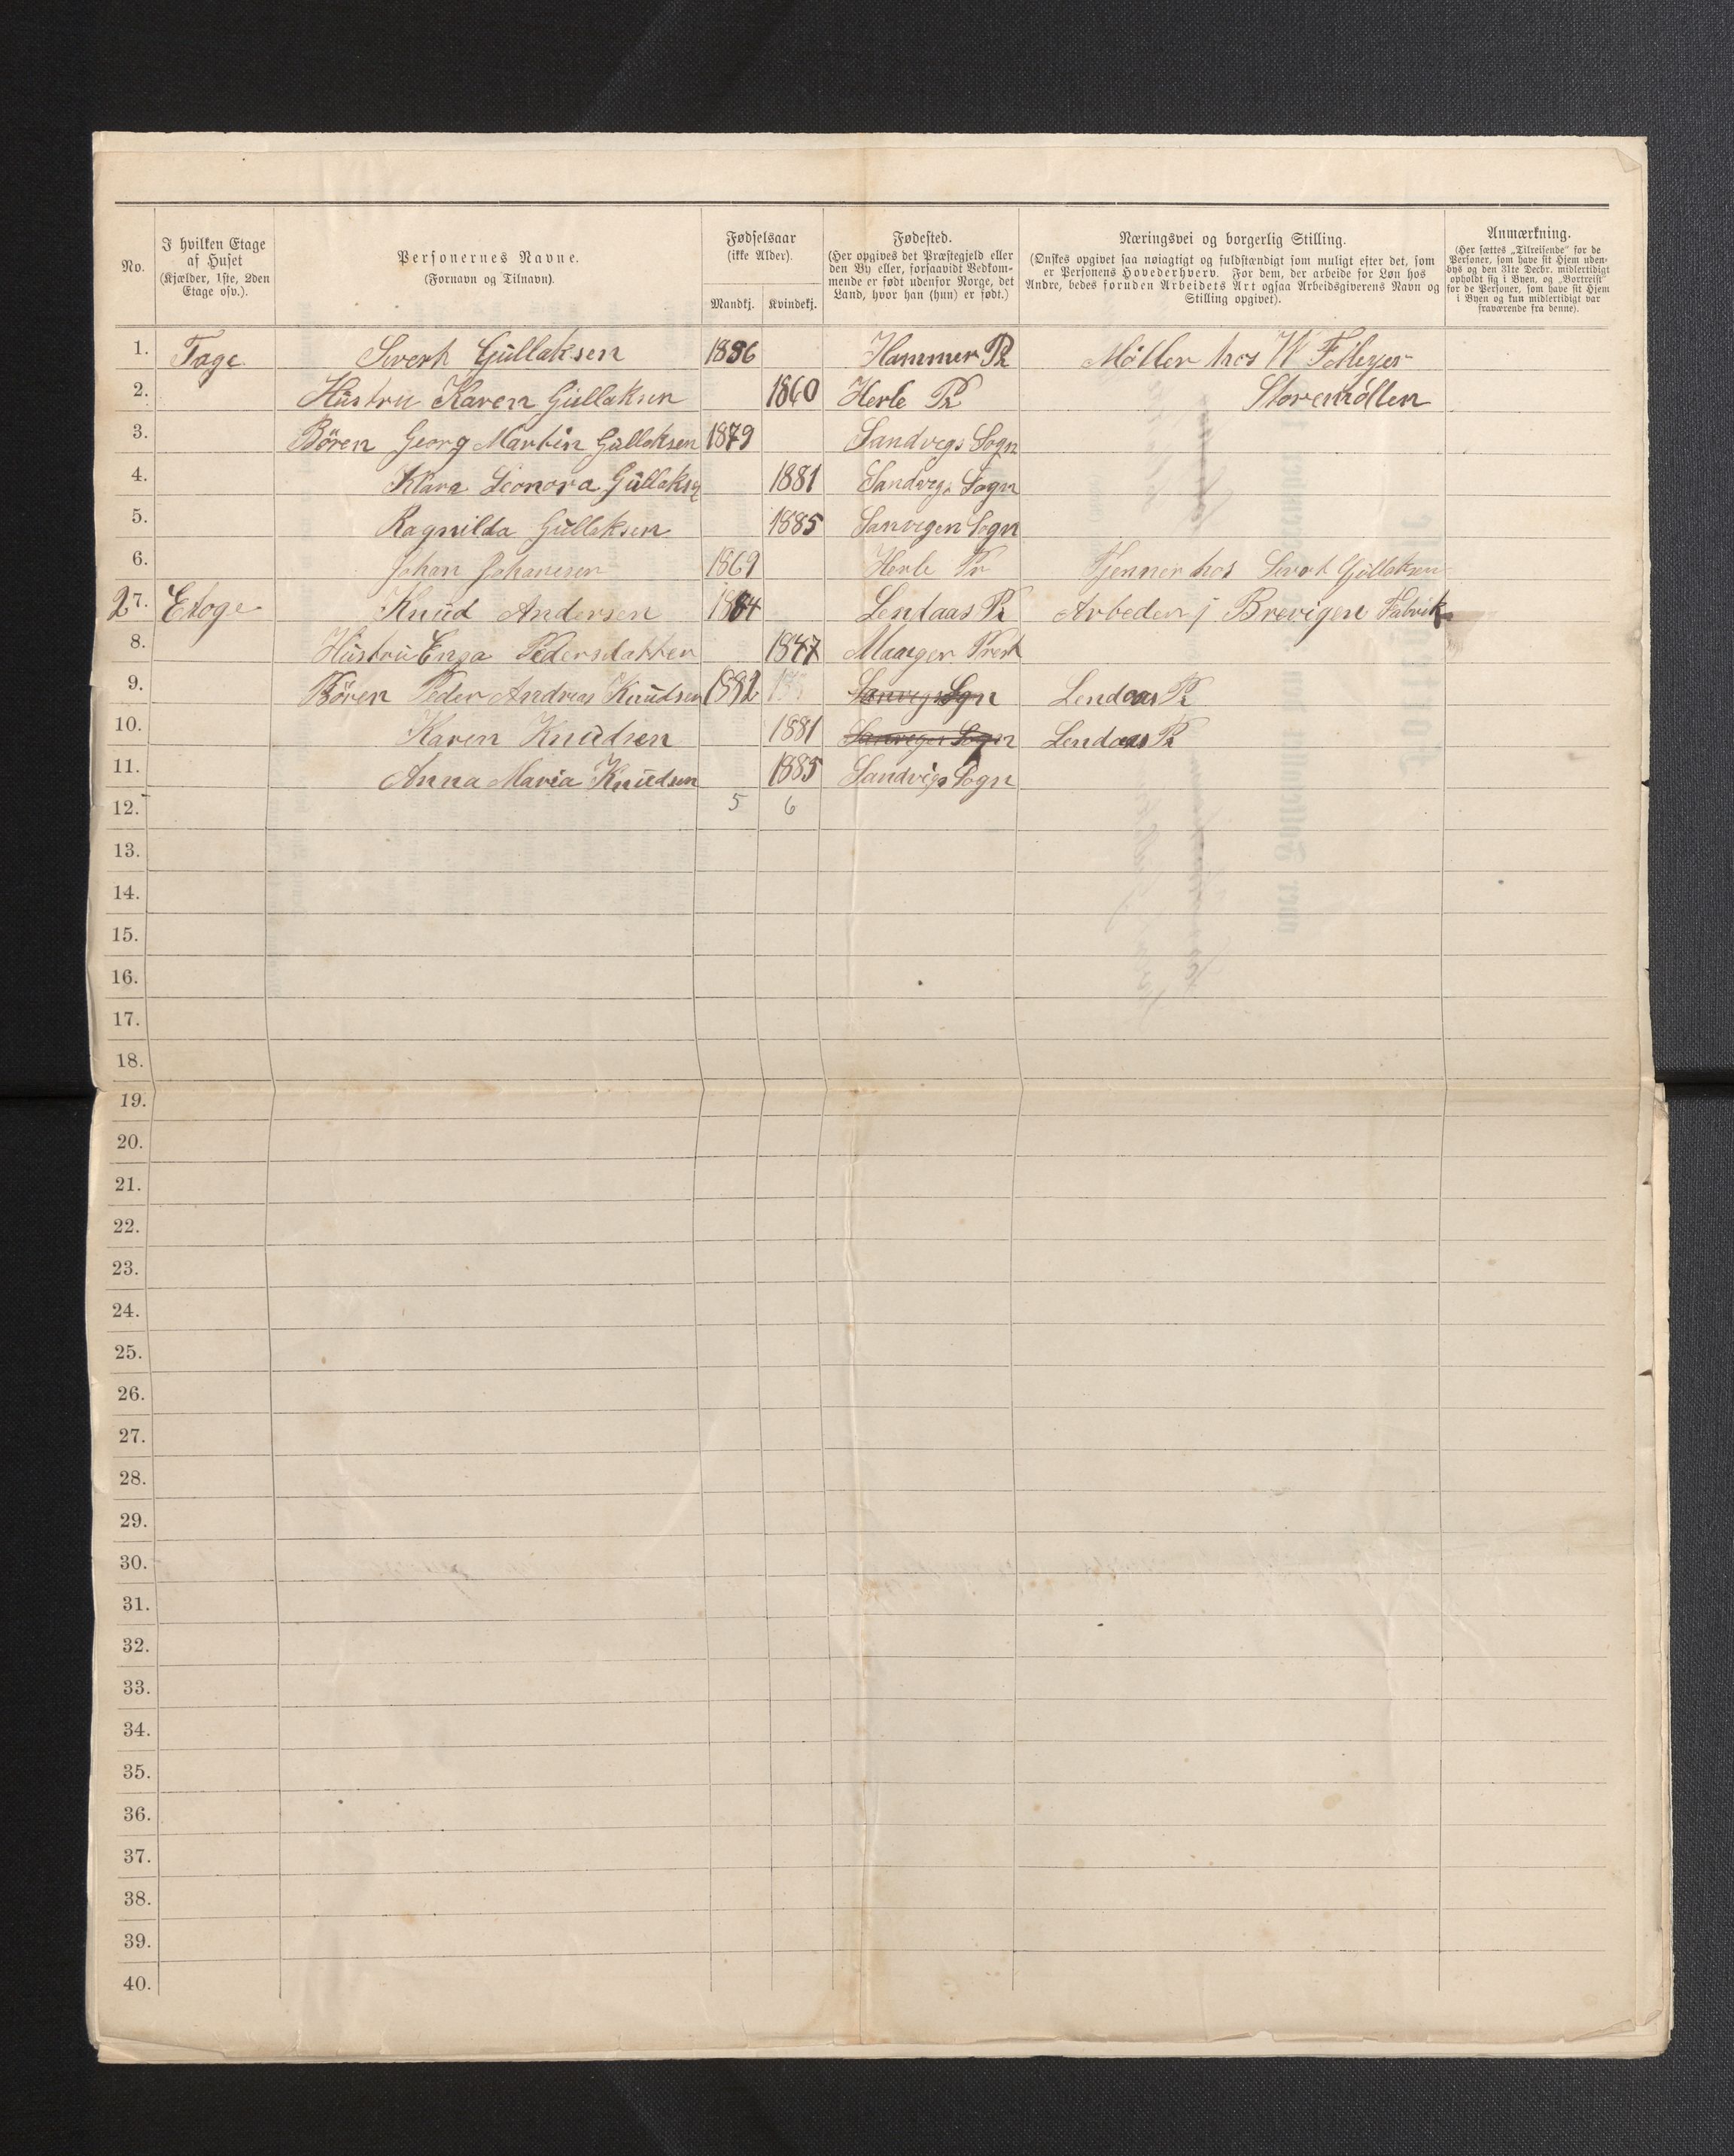 No.
I hvilken Etage
af Huset
(Kjælder, 1ste, 2den
Etage osv.).
Personernes Navne.
(Fornavn og Tilnavn).
Fødselsaar
(ikke Alder).
Mandkj. Kvindekj.
Fødested.
(Her opgives det Præstegjeld eller
den By eller, forsaavidt Vedkom-
mende er født udenfor Norge, det
Land, hvor han (hun) er født.)
Næringsvei og borgerlig Stilling.
(Ønskes opgivet saa nøiagtigt og fuldstændigt som muligt efter det, som
er Personens Hovederhverv. For dem, der arbeide for Løn hos
Andre, bedes foruden Arbeidets Art ogsaa Arbeidsgiverens Navn og
Stilling opgivet).
Anmærkning.
(Her sættes „Tilreisende" for de
Personer, som have sit Hjem uden-
bys og den 31te Decbr. midlertidigt
opholdt sig i Byen, og „Bortreist"
for de Personer, som have sit Hjem
i Byen og kun midlertidigt var
fraværende fra denne).
1. Tage Sivert Gullaksen Hammer Pr Møller hos W
2. Hustru Karen Gullaksen 1860 Herle Pr Storemøllen
3. Børen Georg Martin Gullaksen 1879 Sandvegs Sogn
4. Klara Leonora Gullaksn 1881 Sandvegs Sogn
5. Ragnilda Gullaksen 1885 Sanvegen Sogn
6. Johan Johanesen 1869 Herle Pr Tjenner hos Sivert Gullaksen
27. Etage Knud Andersen Lendaas Pr Arbeder j Brevigen Fabrik
8. Hustru Enga Pedersdatter 1847 Manger Prest
9. Børen Peder Andreas Knudsen 1882 Sanvegs Sogn Lendaas Pr
10. Karen Knudsen 1881 Sanvegs Sogn Lendaas Pr
11. Anna Maria Knudsen 1885 Sandvigs Sogn
12. 5 6
13.
14.
15.
16.
17.
18.
19.
20.
21.
22.
23.
24.
25.
26.
27.
28.
29.
30.
31.
32.
33.
34.
35.
36.
37.
38.
39.
40.